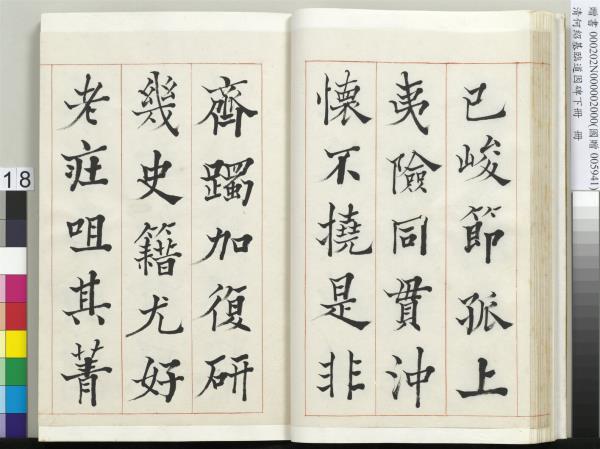 已峻節孤上
夷險同貫沖
懷不撓是非
齊躅加復研
幾史籍尤好
老莊咀其菁
贈書 000202N000002000(國贈 005941)
清何紹基臨道因碑下冊 冊
18